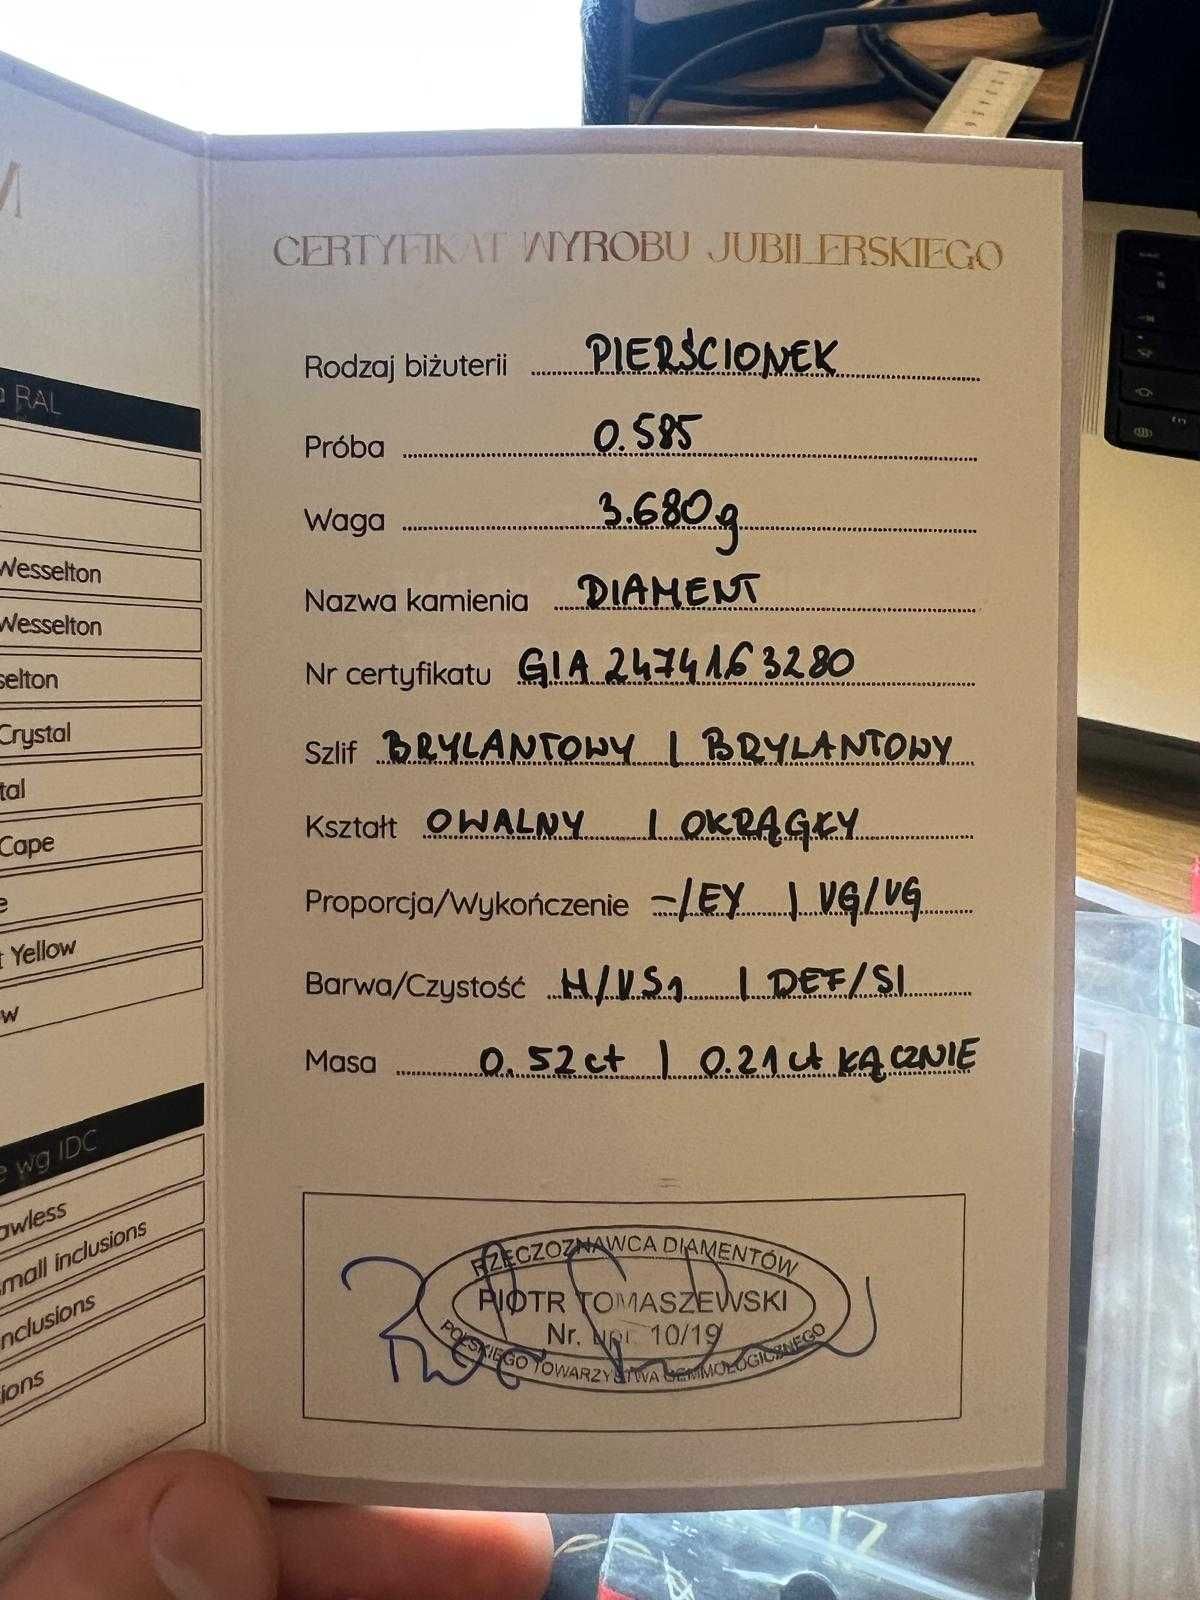 a RAL
Wesselton
Wesselton
selton
Crystal
tal
Cape
e
t Yellow
w
e wg IDC
awless
small inclusions
nclusions
ions
CERTYFIKAT WYROBU JUBILERSKIEGO
Rodzaj biżuterii PIERŚCIONEK
Próba 0.585
Waga 3.680g
Nazwa kamienia DIAMENT
Nr certyfikatu GIA 2474163280
Szlif BRYLANTOWY | BRYLANTOWY
Kształt OWALNY | OKRĄGŁY
Proporcja/Wykończenie -/EY | VG/VG
Barwa/Czystość H/VS1 | DEF/SI
Masa 0.52ct | 0.21ct ŁĄCZNIE
RZECZOZNAWCA DIAMENTÓW
PIOTR TOMASZEWSKI
Nr. upr. 10/19
POLSKIEGO TOWARZYSTWA GEMMOLOGICZNEGO